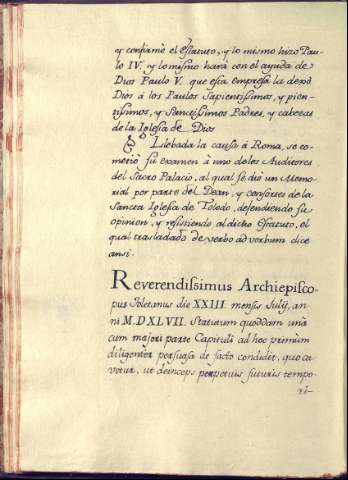 y confirmè el estatuto, y lo mismo hizo Pau-
lo IV. y lo mismo hará con el ayuda de
Dios Paulo V. que esta empresa la dexò
Dios à los Paulos Sapientissimos, y pien-
tissimos, y Sanctissimos Padres, y cabezas
de la Iglesia de Dios
Llebada la causa à Roma, se co-
metiò su examen à uno de los Auditores
del Sacro Palacio, al qual se diò un Memo-
rial por parte del Dean, y consortes de la
Sancta Iglesia de Toledo, defendiendo su
opinion, y resistiendo al dicho Estatuto, el
qual trasladado de verbo ad verbum dice
ansi.
Reverendissimus Archiepisco-
pus Toletanus die XXIII mensis Julij, an-
ni M.DXLVII. Statutum quoddam unà
cum majori parte Capituli ad hoc primùm
diligenter persuasa de facto condidit, quo ca-
vetur, ut deinceps perpetuis futuris tempo-
ri-